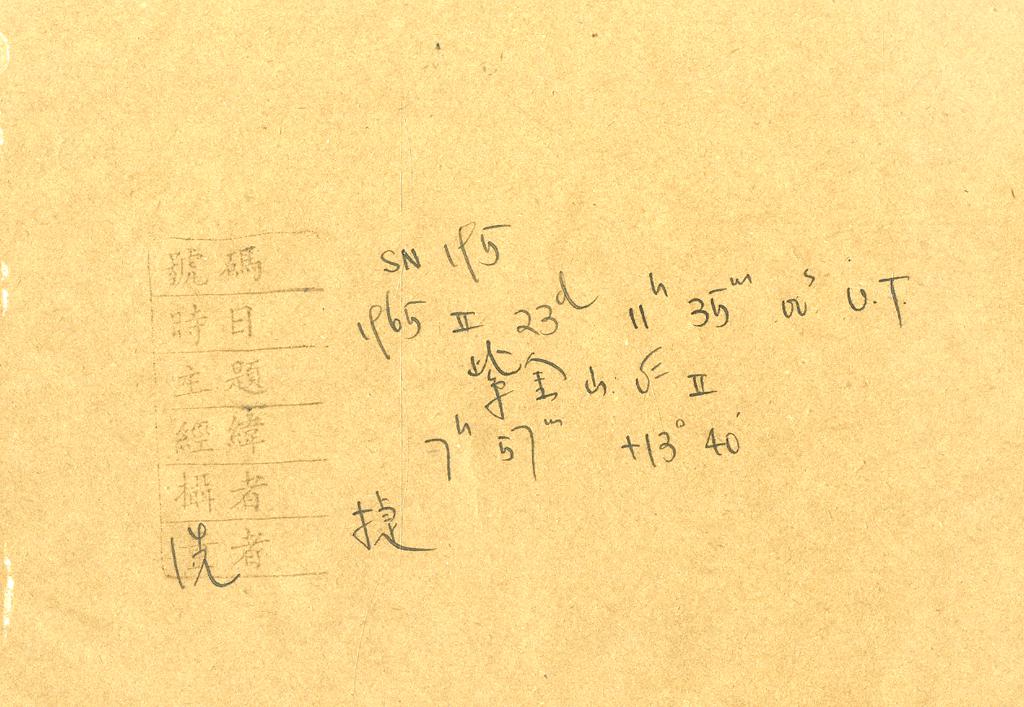 號碼 SN 195
時日 1965 II 23d 11h 35m 00s U.T.
主題 紫金山 II
經緯 7h 57m +13° 40'
攝者
洗者 捷